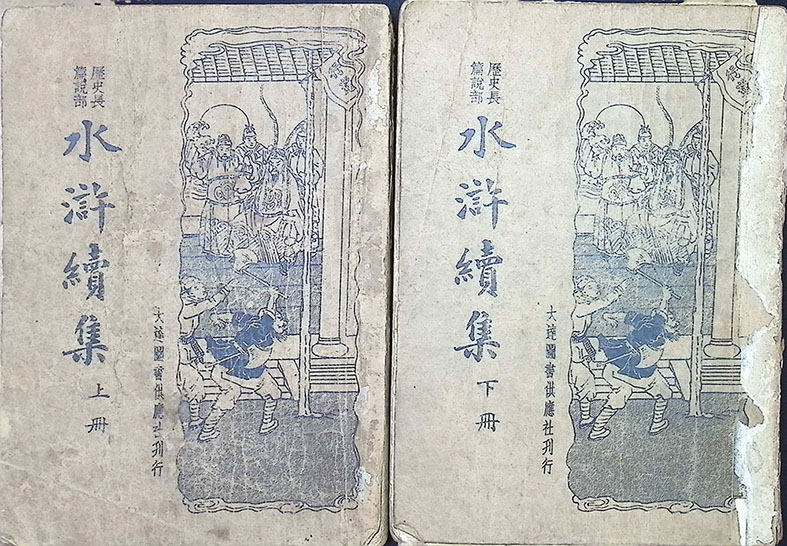 歷史長
篇說部
水滸續集
上冊
大達圖書供應社刊行
歷史長
篇說部
水滸續集
下冊
大達圖書供應社刊行